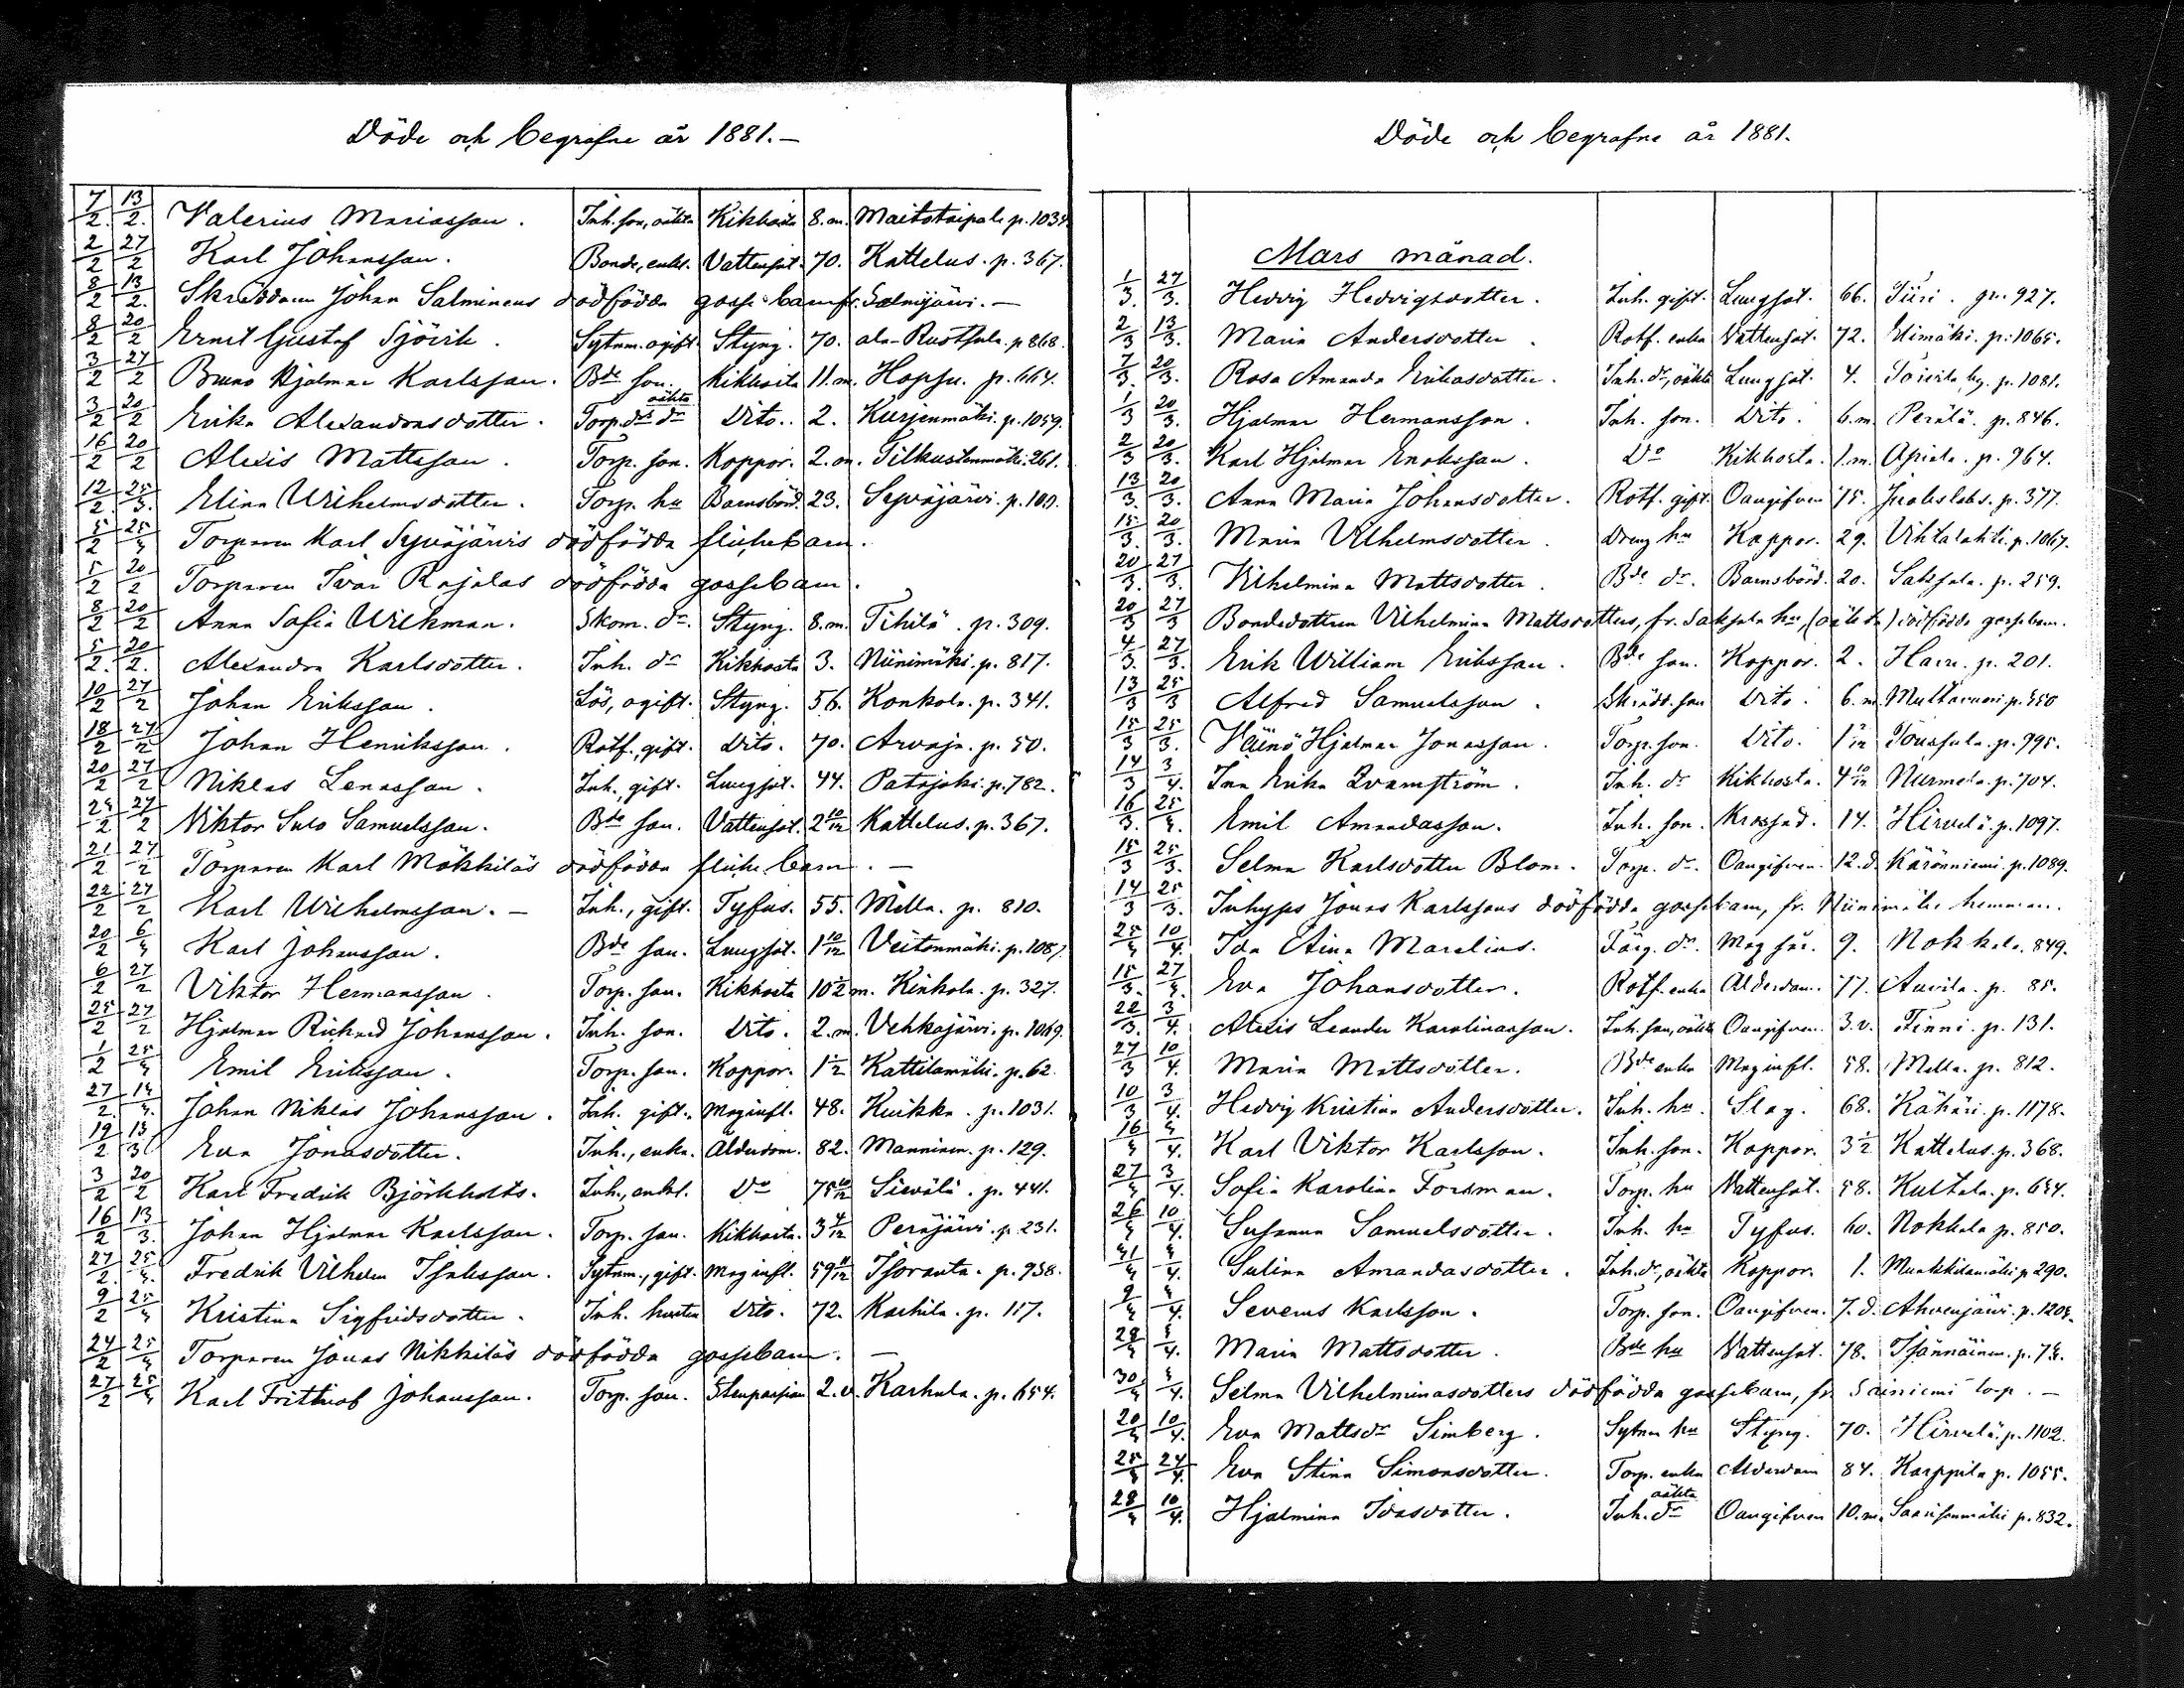 Döde och begrafne år 1881.-
7/2. 13/2. Valerius Mariasson. Inh. son, oäkta Kikhosta 8.m. Maitotaipale p. 1034.
2/2 27/2 Karl Johansson. Bonde, enkl. Vattensot. 70. Kattelus. p. 367.
8/2 13/2. Skräddaren Johan Salminens dödfödda gossebarn fr. Salmijärvi.-
8/2 20/2 Ernst Gustaf Sjövik. Sytnm. ogift Styng. 70. ala-Rustfala. p 868.
3/2 27/2 Bruno Hjalmar Karlsson. Bde son. Kikhosta 11.m. Hapsu. p. 664.
3/2 20/2 Erika Alexandrasdotter. Torp. drs dr oäkta Dito. 2. Kurjenmäki. p. 1059.
16/2 20/2 Alexis Mattsson. Torp. son. Koppor. 2.m. Tilkustenmäki. 261.
12/2 25/3. Elina Wilhelmsdotter. Torp. hu Barnsbörd. 23. Syväjärvi. p. 109.
5/2 25/3 Torparen Karl Syväjärvis dödfödda flickebarn.
5/2 20/2 Torparen Ivar Rajalas dödfödda gossebarn.
8/2 20/2 Anna Sofia Wikman. Skom. dr. Styng. 8.m. Tihilä. p. 309.
5/2. 20/2. Alexandra Karlsdotter. Inh. dr Kikhosta 3. Niinimäki. p. 817.
10/2 27/2 Johan Eriksson. Lös, ogift. Styng. 56. Konkola. p. 341.
18/2 27/2 Johan Henriksson. Rotf., gift. Dito. 70. Arvaja. p. 50.
20/2 27/2 Niklas Lenasson. Inh., gift. Lungsot. 44. Patajoki. p. 782.
24/2 27/2 Viktor Sulo Samuelsson. Bde son. Vattensot. 2 10/12 Kattelus. p. 367.
21/2 27/2 Torparen Karl Mökkiläs dödfödda flicke barn.-
22/2 27/2 Karl Wilhelmsson.- Inh., gift. Tyfus. 55. Mella. p. 810.
20/2 6/3 Karl Johansson. Bde son. Lungsot. 1 10/12 Veitonmäki. p. 1087.
6/2 27/2 Viktor Hermansson. Torp. son. Kikhosta 10 1/2 m. Kinkola. p. 327.
25/2 27/2 Hjalmar Richard Johansson. Inh. son. Dito. 2.m. Vehkajärvi. p. 1069.
1/2 25/3 Emil Eriksson. Torp. son. Koppor. 1 1/2 Kattilamäki. p. 62.
27/2. 14/3. Johan Niklas Johansson. Inh. gift. Maginfl. 48. Kuikka. p. 1031.
19/2 13/3 Eva Jonasdotter. Inh., enka. Ålderdom. 82. Manninen. p. 129.
3/2 20/2 Karl Fredrik Björkholts. Inh., enkl. Do 75 10/12 Sievälä. p. 441.
16/2 13/3. Johan Hjalmar Karlsson. Torp. son. Kikhosta. 3 4/12 Peräjärvi. p. 231.
27/2. 25/3. Fredrik Vilhelm Isaksson. Sytnm., gift. Maginfl. 59 11/12 Isoranta. p. 938.
9/2 25/3 Kristina Sigfridsdotter. Inh. hustru Dito. 72. Karhila. p. 117.
24/2 25/3 Torparen Jonas Nikkiläs dödfödda gossebarn.-
27/2 25/3 Karl Frithiof Johansson. Torp. son. Stenpassion 2.v. Karhula. p. 654.
Döde och begrafne år 1881.
Mars månad.
1/3. 27/3. Hedvig Hedvigsdotter. Inh. gift. Lungsot. 66. Siiri. p. 927.
2/3 13/3. Maria Andersdotter. Rotf. enka Vattensot. 72. Elimäki. p. 1065.
7/3. 20/3. Rosa Amanda Erikasdotter. Inh. dr, oäkta Lungsot. 4. p. 1081.
1/3 20/3. Hjalmar Hermansson. Inh. son. Dito. 6.m. Perälä. p. 846.
2/3 20/3. Karl Hjalmar Enoksson. Do Kikhosta. 1.m. Apiala. p. 964.
13/3. 20/3. Anna Maria Johansdotter. Rotf. gift. Oangifven 75. p. 377.
15/3. 20/3. Maria Vilhelmsdotter. Dreng hu Koppor. 29. Vihtalahti. p. 1067.
20/3. 27/3. Vilhelmina Mattsdotter. Bde dr. Barnsbörd. 20. Saksala. p. 259.
20/3 27/3 Bondedottren Vilhelmina Mattsdotters, fr. Saksala hn, (oäkta) dödfödda gossebarn.
4/3. 27/3. Erik William Eriksson. Bde son. Koppor. 2. Haru. p. 201.
13/3 25/3 Alfred Samuelsson. Skrädd. son Dito. 6.m. p. 550
15/3 25/3. Väinö Hjalmar Jonasson. Torp. son. Dito. p. 995.
14/3 3/4. Ina Erika Zramström. Inh. dr Kikhosta. 4 10/12 Nurmela. p. 704.
16/3. 25/3. Emil Amandasson. Inh. son. Krossad. 14. Hirvelä. p. 1097.
15/3 25/3. Selma Karlsdotter Blom. Torp. dr. Oangifven. 12.d. Käränniemi. p. 1089.
14/3 25/3. Inhyses Jonas Karlssons dödfödda gossebarn, fr. Niinimäki hemman.
25/3 10/4. Ida Aina Marelius. Färg. dr. 9. Nokkala. 849.
15/3. 27/3. Eva Johansdotter. Rotf. enka Ålderdom. 77. Auvila. p. 85.
22/3. 3/4. Alexis Leander Karolinasson. Inh. son, oäkta Oangifven. 3.v. Finni. p. 131.
27/3 10/4. Maria Mattsdotter. Bde enka Maginfl. 58. Mella. p. 812.
10/3 3/4. Hedvig Kristina Andersdotter. Inh. hu. Slag. 68. Kähäri. p. 1178.
16/3 3/4. Karl Viktor Karlsson. Inh. son. Koppor. 3 1/2 Kattelus. p. 368.
27/3 3/4. Sofia Karolina Forsman. Torp. hu Vattensot. 58. Kultala. p. 654.
26/3 10/4. Susanna Samuelsdotter. Inh. hu Tyfus. 60. Nokkala p. 850.
31/3 3/4. Salina Amandasdotter. Inh. dr, oäkta Koppor. 1. Munkkilamäki p. 290.
9/3 3/4. Severus Karlsson. Torp. son. Oangifven. 7.d. Ahvenjärvi. p. 1205.
28/3 3/4. Maria Mattsdotter. Bde hu Vattensot. 78. Isännäinen. p. 75.
30/3 3/4. Selma Vilhelminasdotters dödfödda gossebarn, fr. Sainiemi torp.-
20/3 10/4. Eva Mattsdr Simberg. Sytnm hu Styng. 70. Hirvelä. p. 1102.
25/3 24/4. Eva Stina Simonsdotter. Torp. enka Ålderdom 84. Karppila p. 1055.
28/3 10/4. Hjalmina Idasdotter. Inh. dr oäkta Oangifven 10.m. Saarisenmäki p. 832.